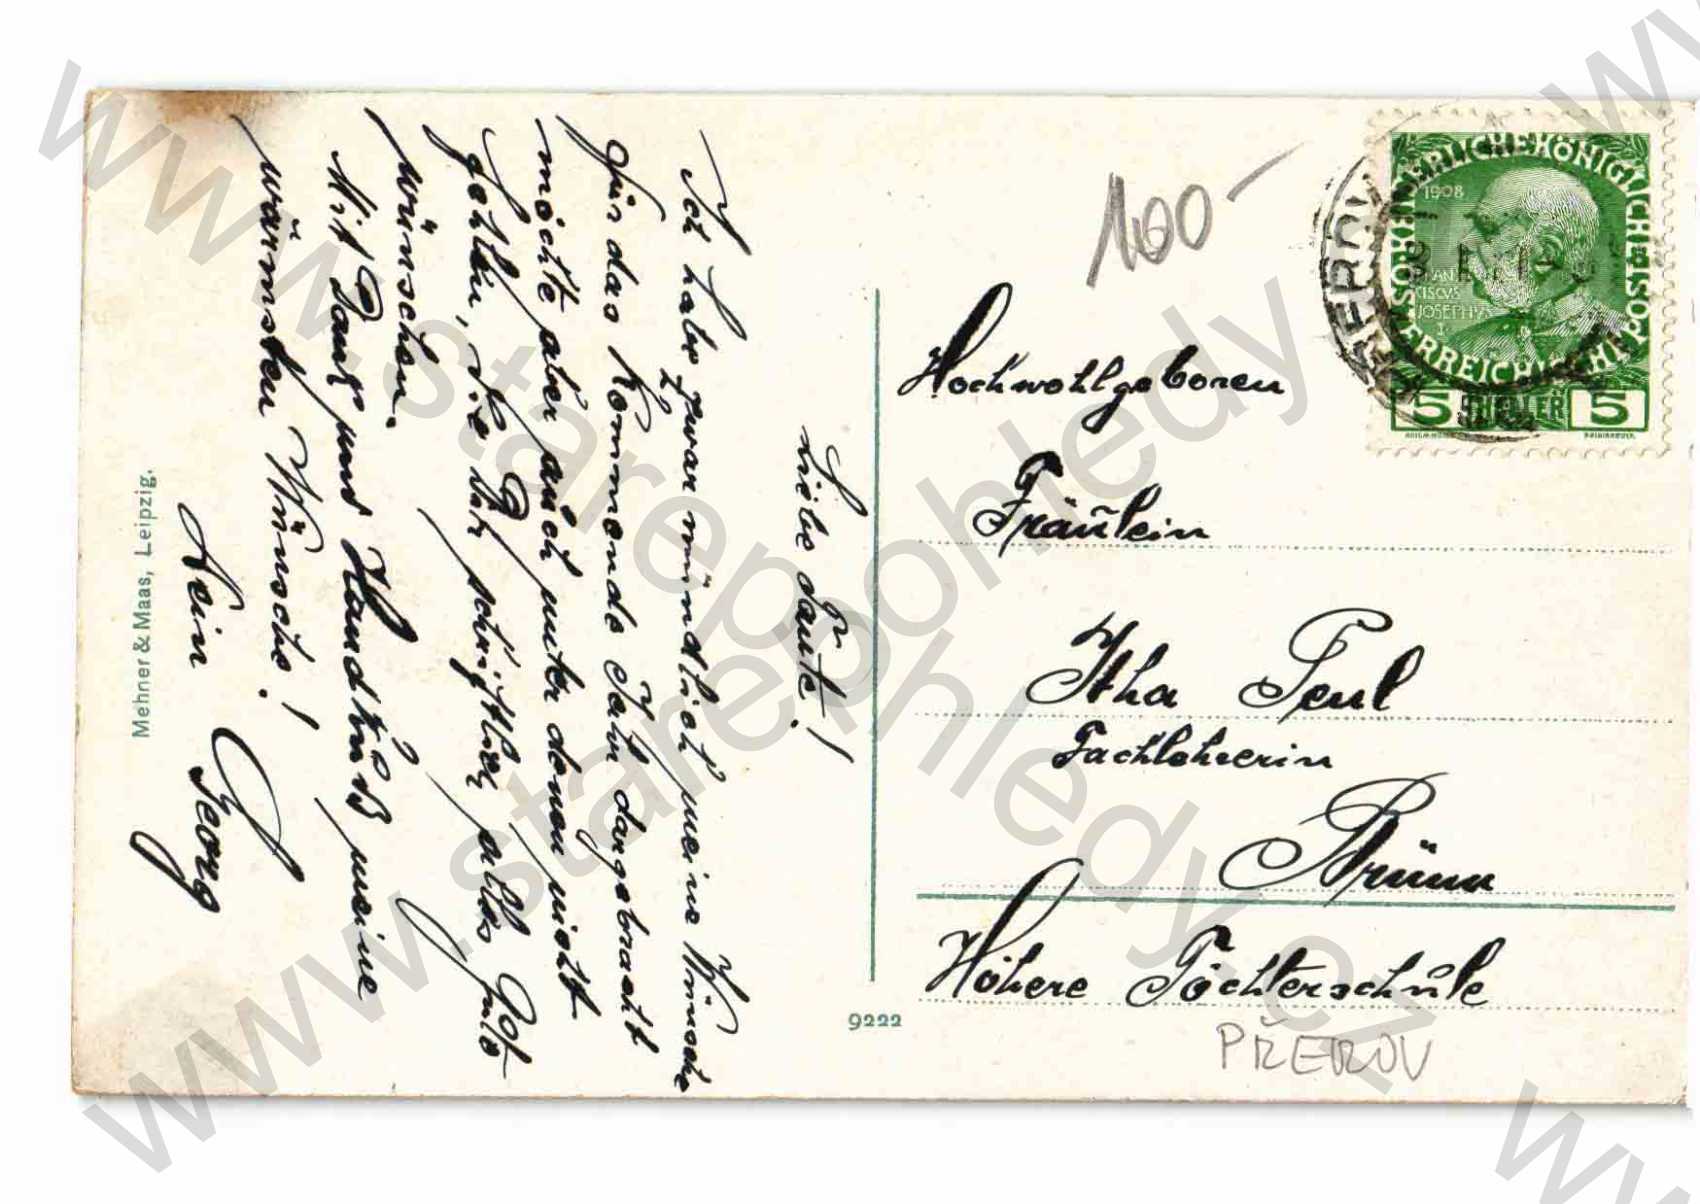 Liebe Tante!
Ich habe zwar mündlich meine Wünsche
für das kommende Jahr dargebracht
möchte aber auch unter denen nicht
fehlen, die Dir schriftlich alles Gute
wünschen.
Mit Dank und Handkuß meine
wärmsten Wünsche!
Dein Georg
Mehner & Maas, Leipzig.
9222
100-
Hochwohlgeboren
Fräulein
Itha Feul
Fachlehrerin
Brünn
Höhere Töchterschule
PŘEROV
KAISERLICHE KÖNIGLICHE
ÖSTERREICHISCHE POST
1908
FRAN
CISCVS
JOSEPHVS
I
5 HELLER 5
www.starepohledy.cz
www.starepohledy.cz